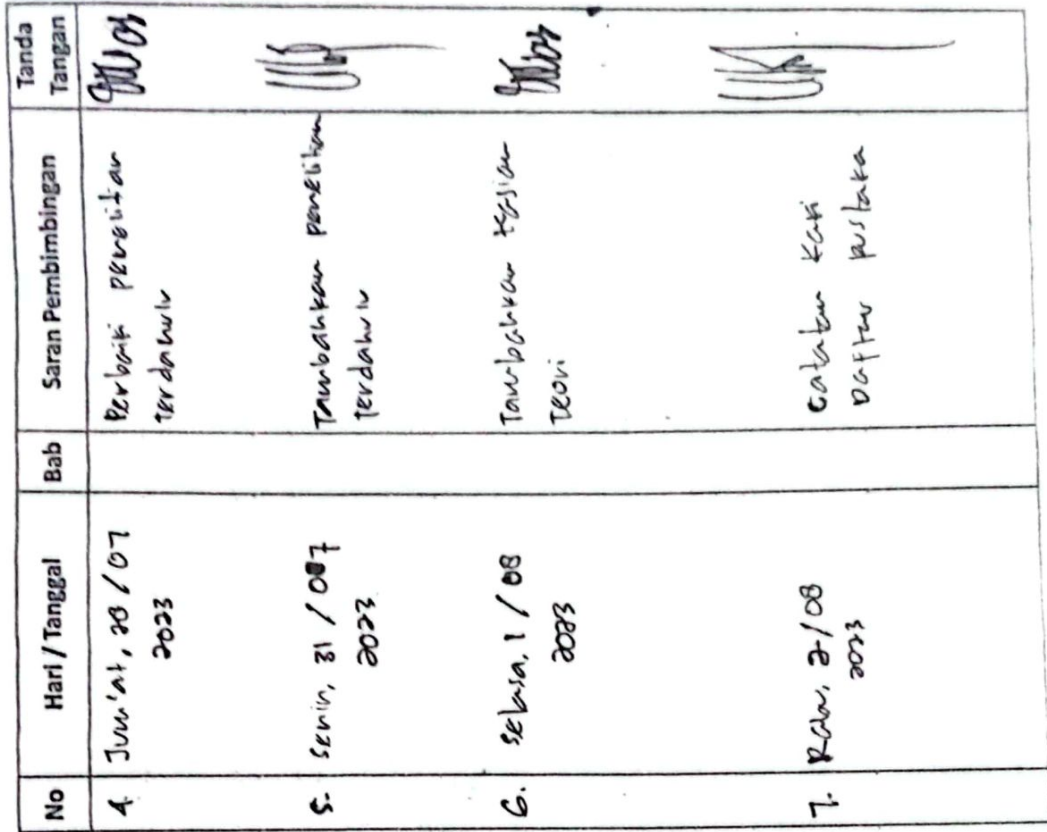 No Hari / Tanggal Bab Saran Pembimbingan Tanda Tangan
4. Jum'at, 28 / 07 2023 Perbaiki penelitian terdahulu
5. Senin, 31 / 07 2023 Tambahkan penelitian terdahulu
6. Selasa, 1 / 08 2023 Tambahkan kajian teori
7. Rabu, 2 / 08 2023 Catatan kaki Daftar pustaka